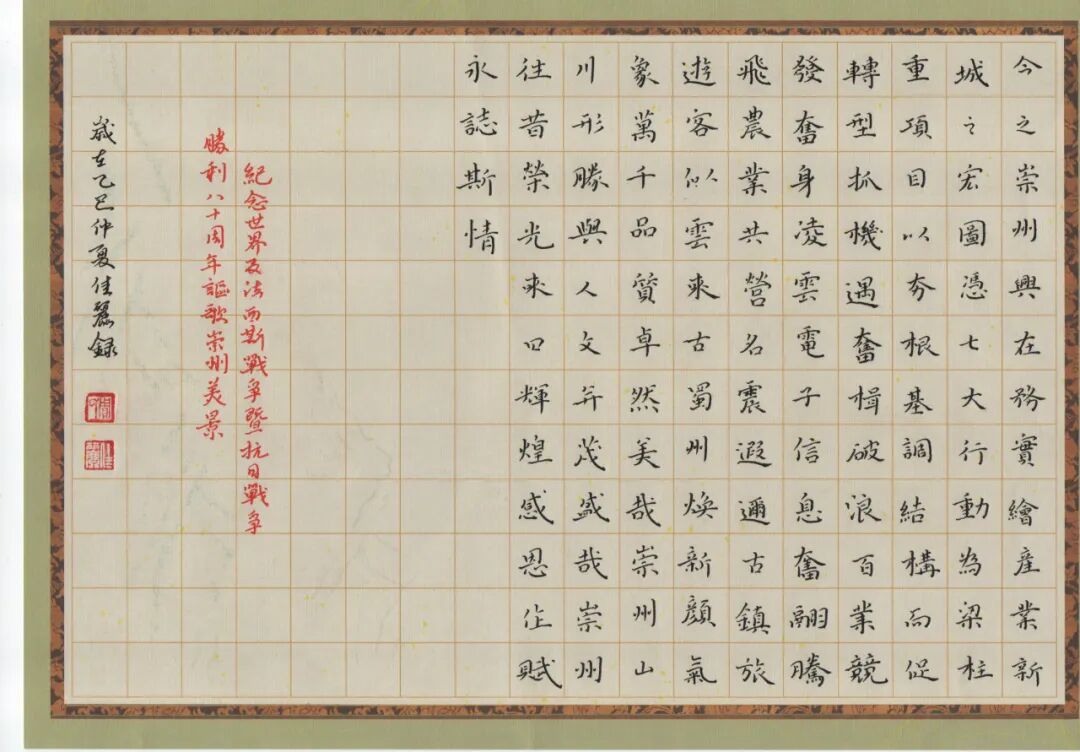 今之崇州興在務實繪産業新
城之宏圖憑七大行動為梁柱
重項目以夯根基調結構而促
轉型抓機遇奮楫破浪百業競
發奮身凌雲電子信息奮翮騰
飛農業共營名震遐邇古鎮旅
遊客似雲來古蜀州煥新顏氣
象萬千品質卓然美哉崇州山
川形勝與人文并茂盛哉崇州
往昔榮光來日輝煌感恩作賦
永誌斯情
紀念世界反法西斯戰争暨抗日戰争
勝利八十周年謳歌崇州美景
歲在乙巳仲夏佳麗録